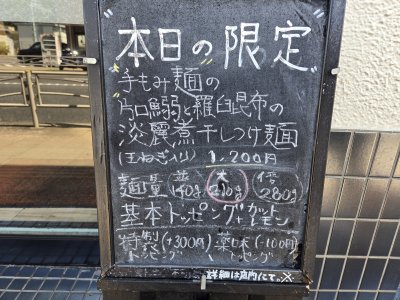 "本日の限定"
手もみ麺の
片口鰯と羅臼昆布の
淡麗煮干しつけ麺
(玉ねぎ入り) 1,200円
麺量 並140g 大210g 倍280g
基本トッピング+カットレモン
特製トッピング(+300円) 薬味トッピング(-100円)
詳細は店内にて。